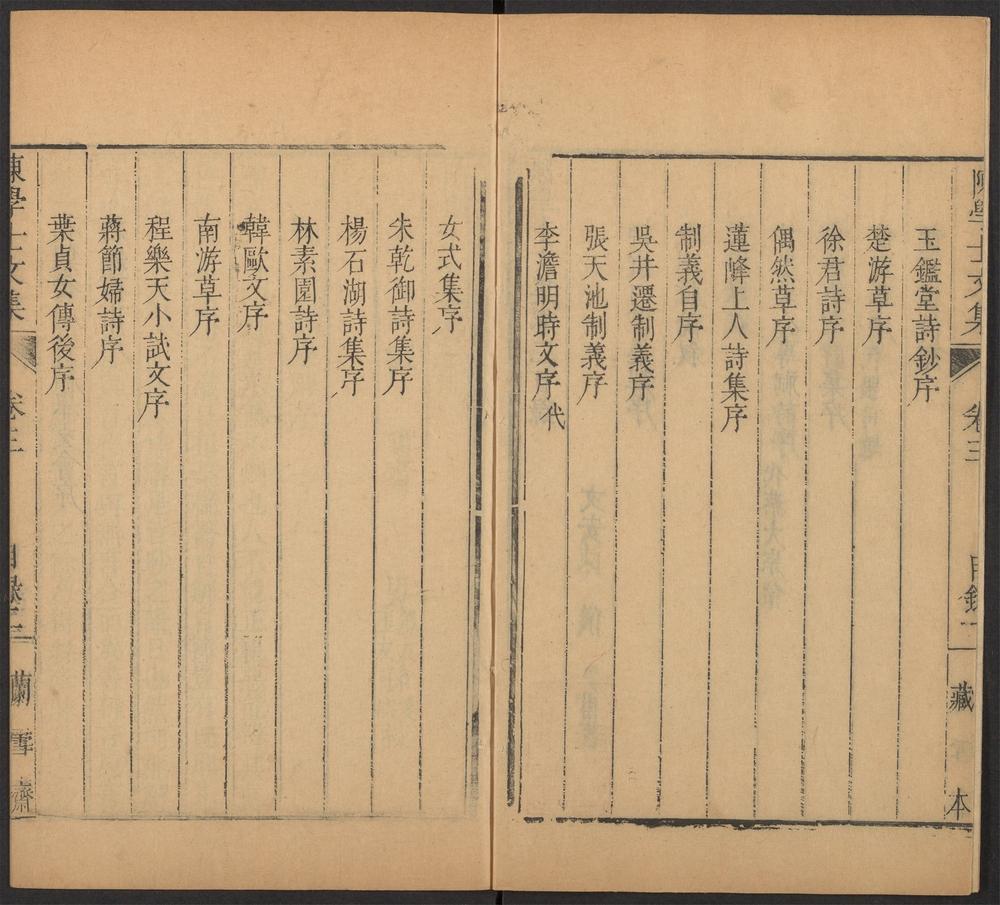 學士文集 卷三 目錄一 藏 本
玉鑑堂詩鈔序
楚游草序
徐君詩序
偶然草序
蓮峰上人詩集序
制義自序
吳井遷制義序
張天池制義序
李澹明時文序代
女式集序
朱乾御詩集序
楊石湖詩集序
林素園詩序
韓歐文序
南游草序
程樂天小試文序
蔣節婦詩序
葉貞女傳後序
陳學士文集 卷三 目錄二 蘭雪齋